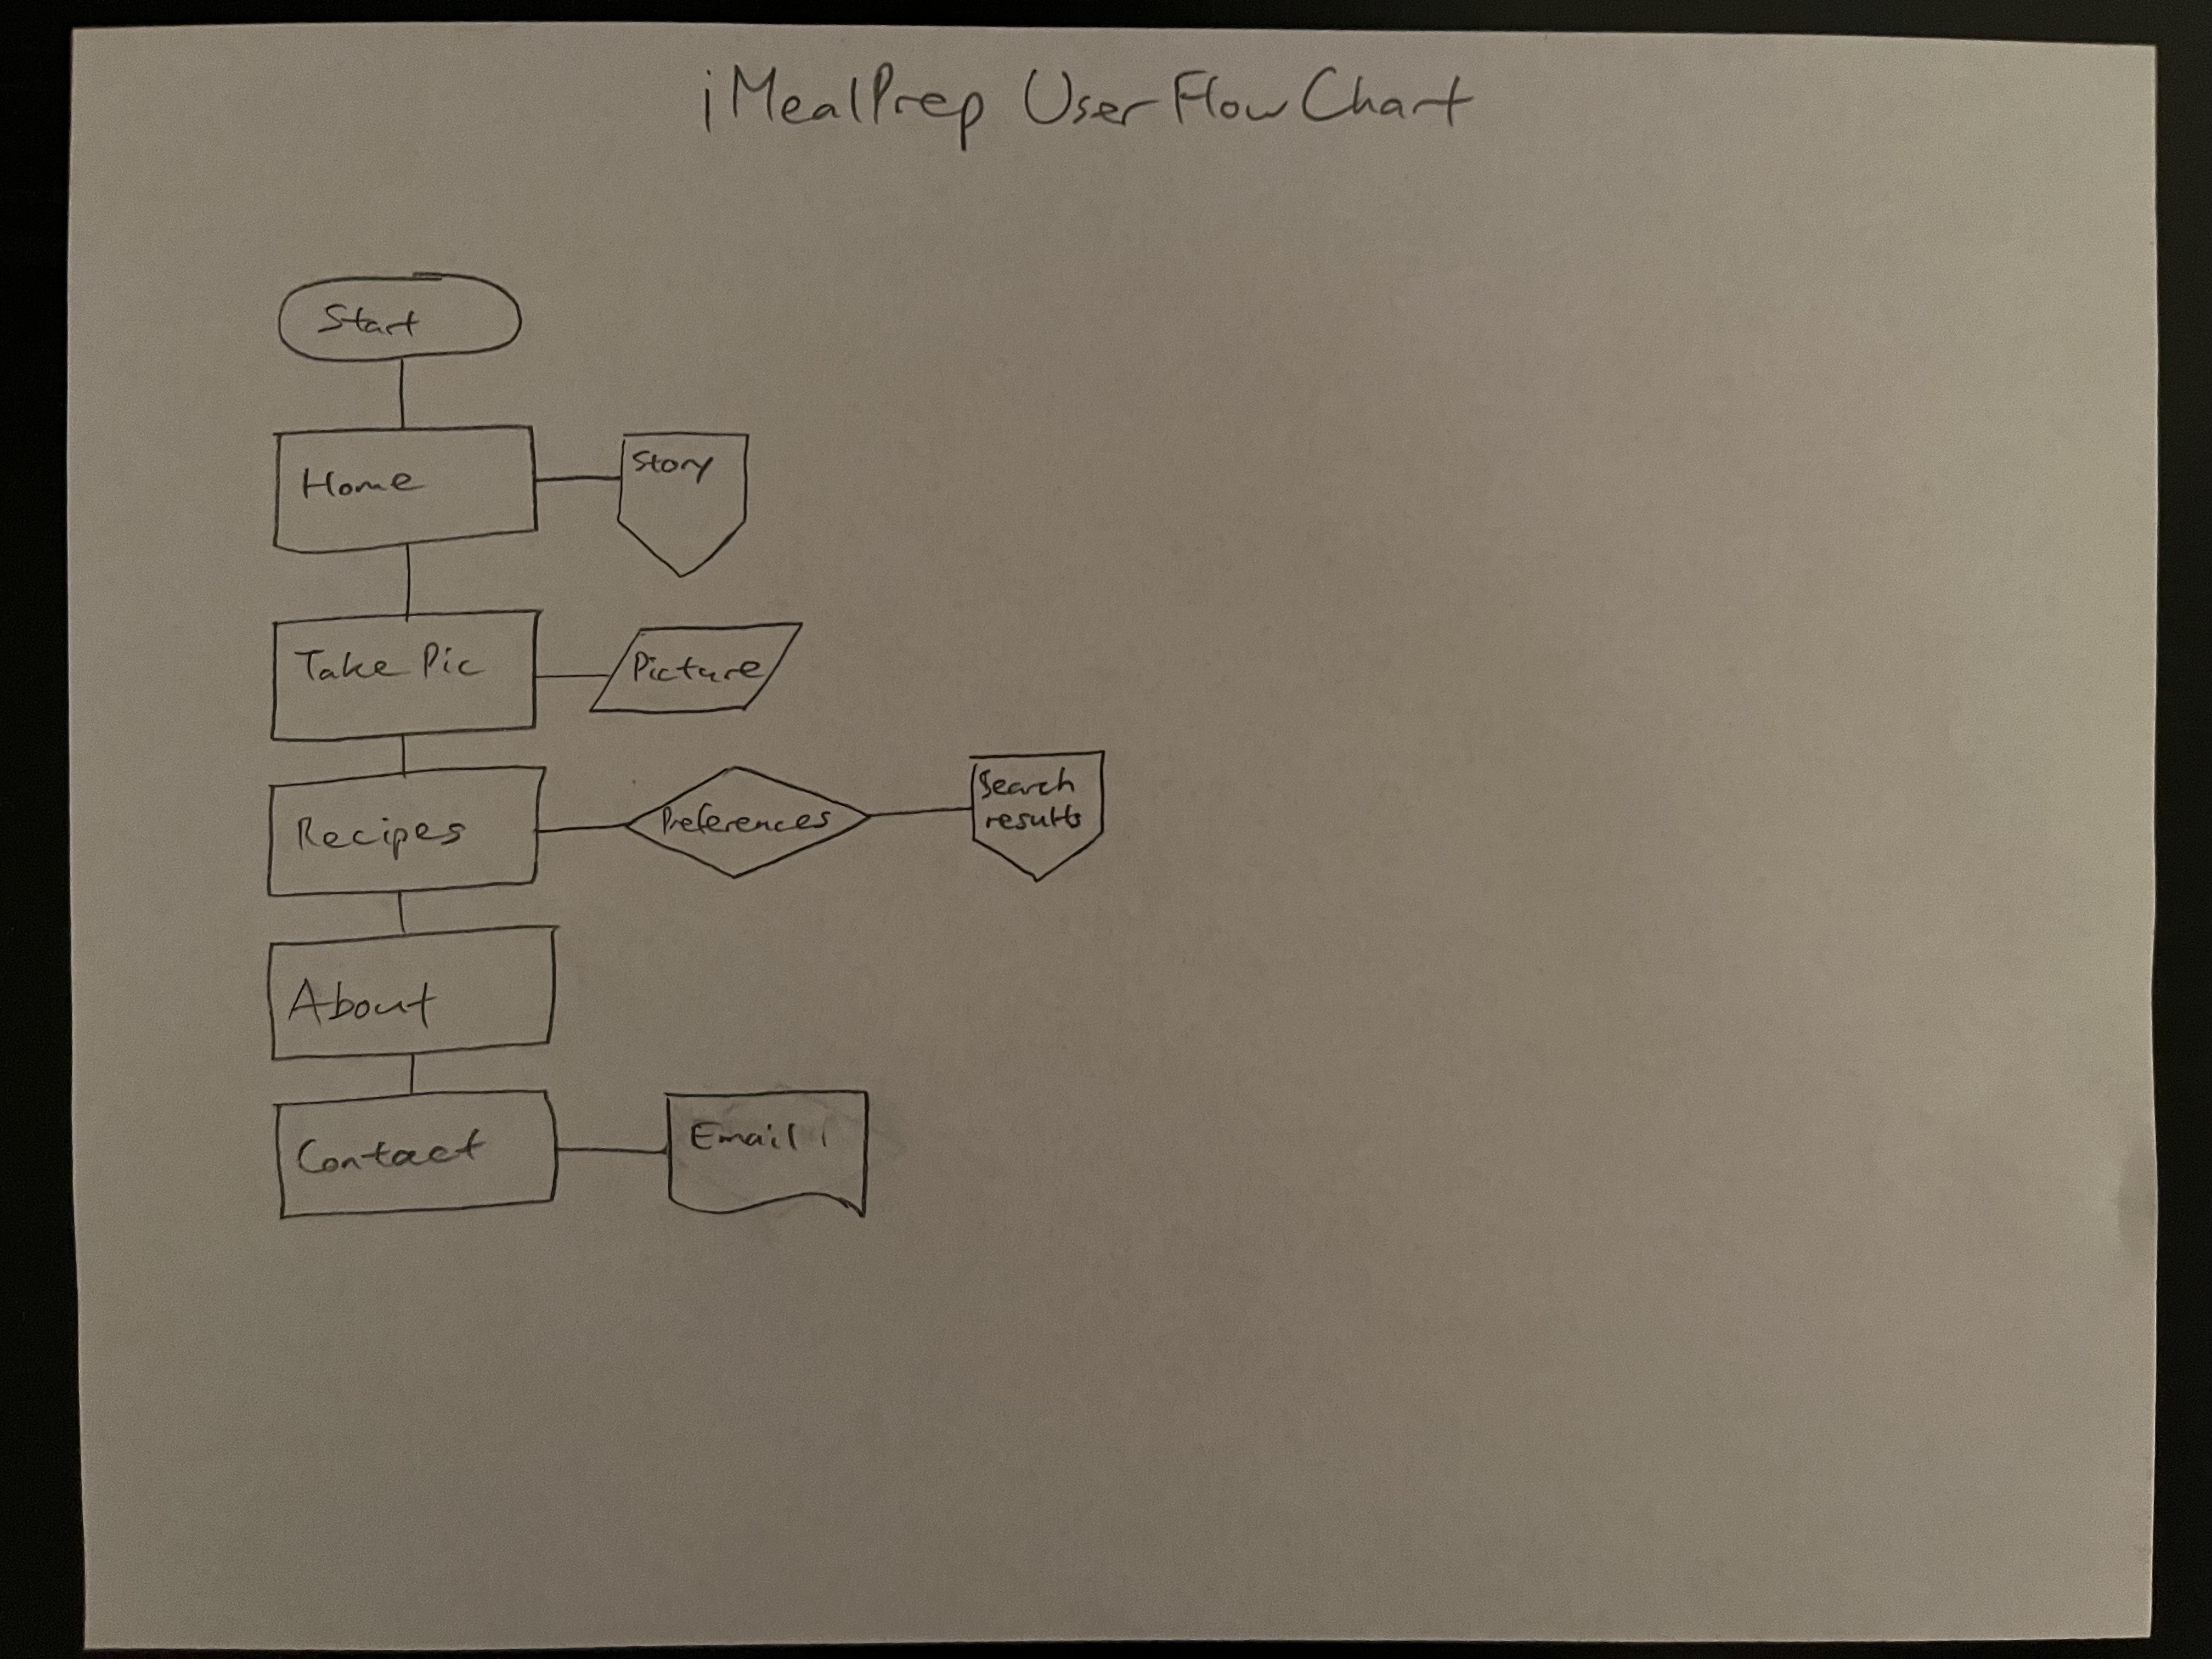 iMealPrep User Flow Chart
Start
Home
Story
Take Pic
Picture
Recipes
Preferences
Search
results
About
Contact
Email